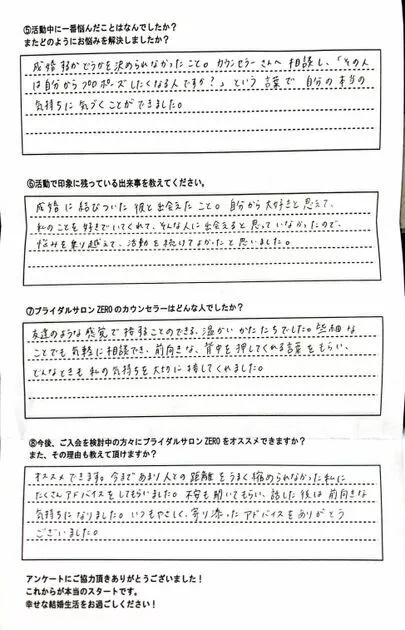 ⑤活動中に一番悩んだことはなんでしたか?
またどのようにお悩みを解決しましたか?
成婚するかどうかを決められなかったこと。カウンセラーさんへ相談し、「その人
は自分からプロポーズしたくなる人ですか?」という言葉で自分の本当の
気持ちに気づくことができました。
⑥活動で印象に残っている出来事を教えてください。
成婚に結びついた彼と出会えたこと。自分から大好きと思えて、
私のことを好きでいてくれて、そんな人に出会えると思っていなかったので、
悩みを乗り越えて、活動を続けてよかったと思いました。
⑦ブライダルサロンZEROのカウンセラーはどんな人でしたか?
友達のような感覚で接することのできる、温かいかたたちでした。些細な
ことでも気軽に相談でき、前向きな、背中を押してくれる言葉をもらい、
どんなときも私の気持ちを大切に接してくれました。
⑧今後、ご入会を検討中の方々にブライダルサロンZEROをオススメできますか?
また、その理由も教えて頂けますか?
オススメできます。今まであまり人との距離をうまく縮められなかった私に
たくさんアドバイスをしてもらいました。不安も聞いてもらい、話した後は前向きな
気持ちになりました。いつもやさしく、寄り添ったアドバイスをありがとう
ございました。
アンケートにご協力頂きありがとうございました!
これからが本当のスタートです。
幸せな結婚生活をお過ごしください!